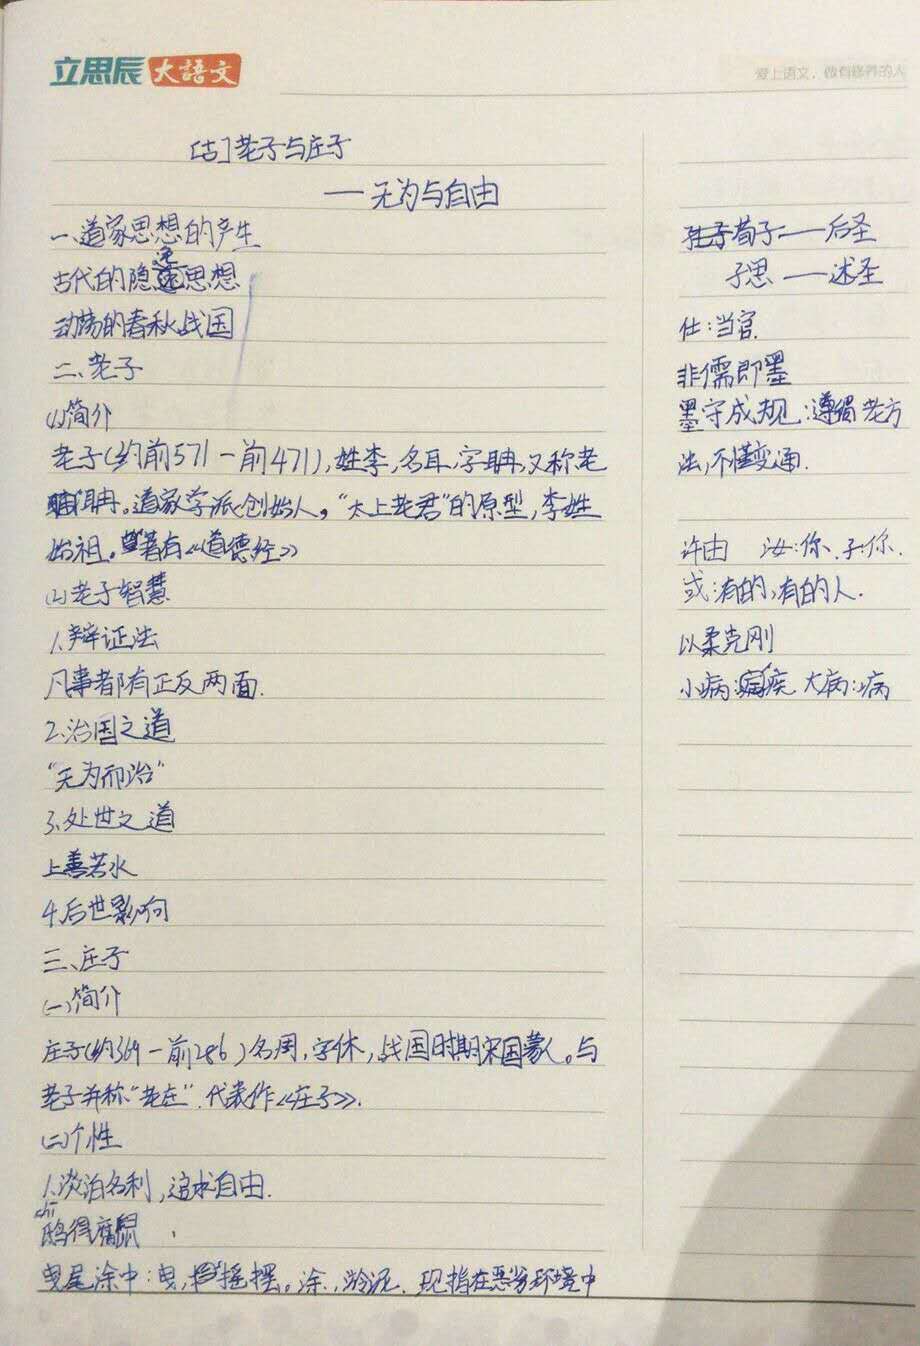 立思辰大語文
爱上语文，做有修养的人
[古]老子与庄子
——无为与自由
一、道家思想的产生
古代的隐逸思想
动荡的春秋战国
二、老子
(1)简介
老子(约前571－前471),姓李,名耳,字聃,又称老
聃。道家学派创始人。"太上老君"的原型,李姓
始祖。著有《道德经》
(2)老子智慧
1.辩证法
凡事都有正反两面.
2.治国之道
"无为而治"
3.处世之道
上善若水
4.后世影响
三、庄子
(一)简介
庄子(约369－前286)名周,字休,战国时期宋国蒙人。与
老子并称"老庄".代表作《庄子》.
(二)个性
1.淡泊名利,追求自由.
chī
鸱得腐鼠
曳尾涂中:曳,摇摆。涂,泥.现指在恶劣环境中
荀子——后圣
子思——述圣
仕:当官.
非儒即墨
墨守成规:遵循老方
法,不懂变通.
许由 汝:你.子:你.
或:有的,有的人.
以柔克刚
小病:疾 大病:病